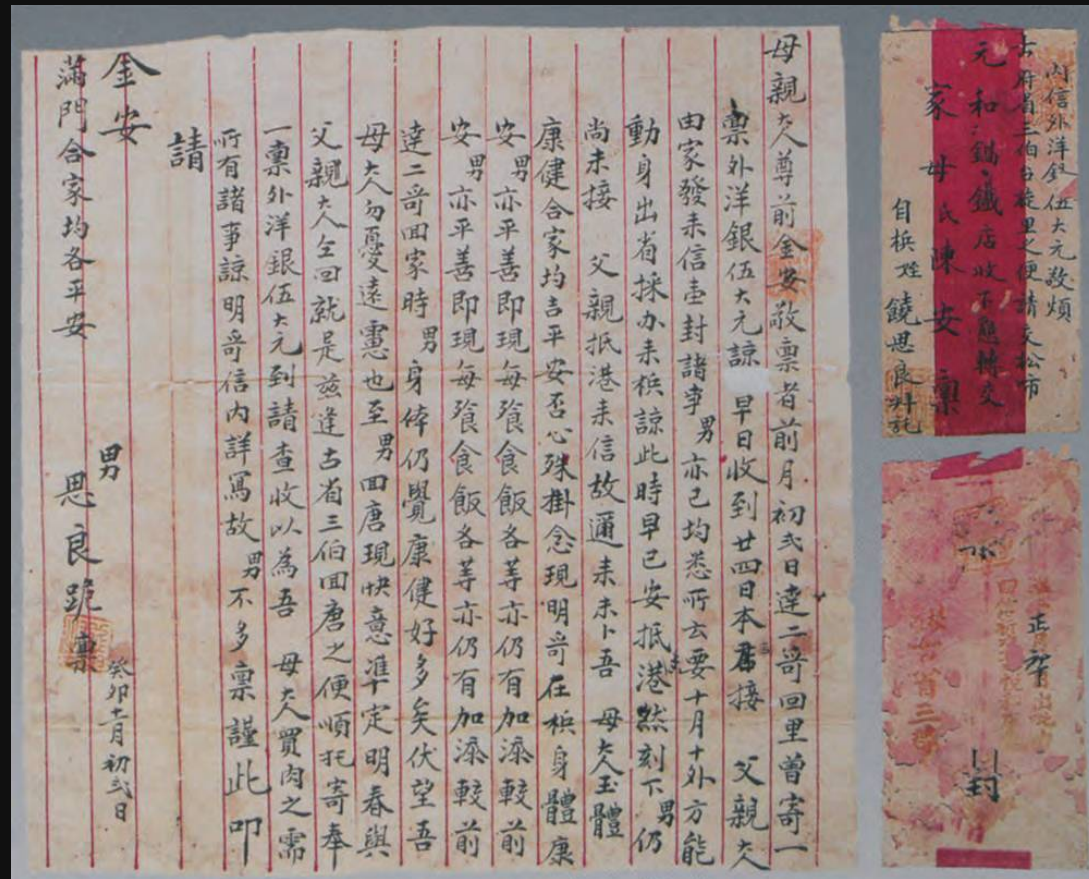 母親大人尊前金安敬禀者前月初弍日達二哥回里曾寄一
禀外洋銀伍大元諒早日收到廿四日本居接 父親大人
由家發来信壹封諸事男亦已均悉所云要十月十外方能
動身出省採办来梹諒此時早已安抵港去然刻下男仍
尚未接 父親抵港来信故邇来未卜吾 母大人玉體
康健合家均吉平安否心殊掛念現明哥在梹身體康
安男亦平善即現每飡食飯各等亦仍有加添較前
安男亦平善即現每飡食飯各等亦仍有加添較前
達二哥回家時男身体仍覺康健好多矣伏望吾
母大人勿憂遠慮也至男回唐現快意准定明春與
父親大人仝回就是兹逢古省三伯回唐之便順托寄奉
一禀外洋銀伍大元到請查收以為吾 母大人買肉之需
所有諸事諒明哥信內詳寫故男不多禀謹此叩
請
金安
滿門合家均各平安
男 思良跪禀
癸卯十一月初弍日
內信外洋銀伍大元敬煩
古府省三伯台旋里之便請交松市
元和鐵店收下懇轉交
家母氏陳安禀
自梹姪饒思良拜託
正
封